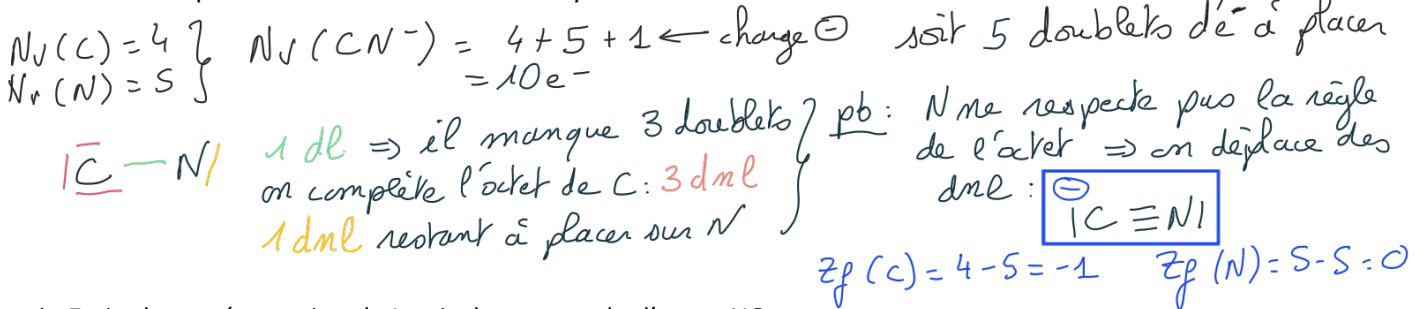 Nv(C) = 4 } Nv(CN⁻) = 4 + 5 + 1 ← charge ⊖ soit 5 doublets d'e⁻ à placer
Nv(N) = 5 = 10e⁻
|C — N| 1 dl ⇒ il manque 3 doublets
on complète l'octet de C : 3 dnl
1 dnl restant à placer sur N
pb : N ne respecte pas la règle
de l'octet ⇒ on déplace des
dnl : ⊖ |C ≡ N|
Zf (C) = 4 - 5 = -1 Zf (N) = 5 - 5 = 0